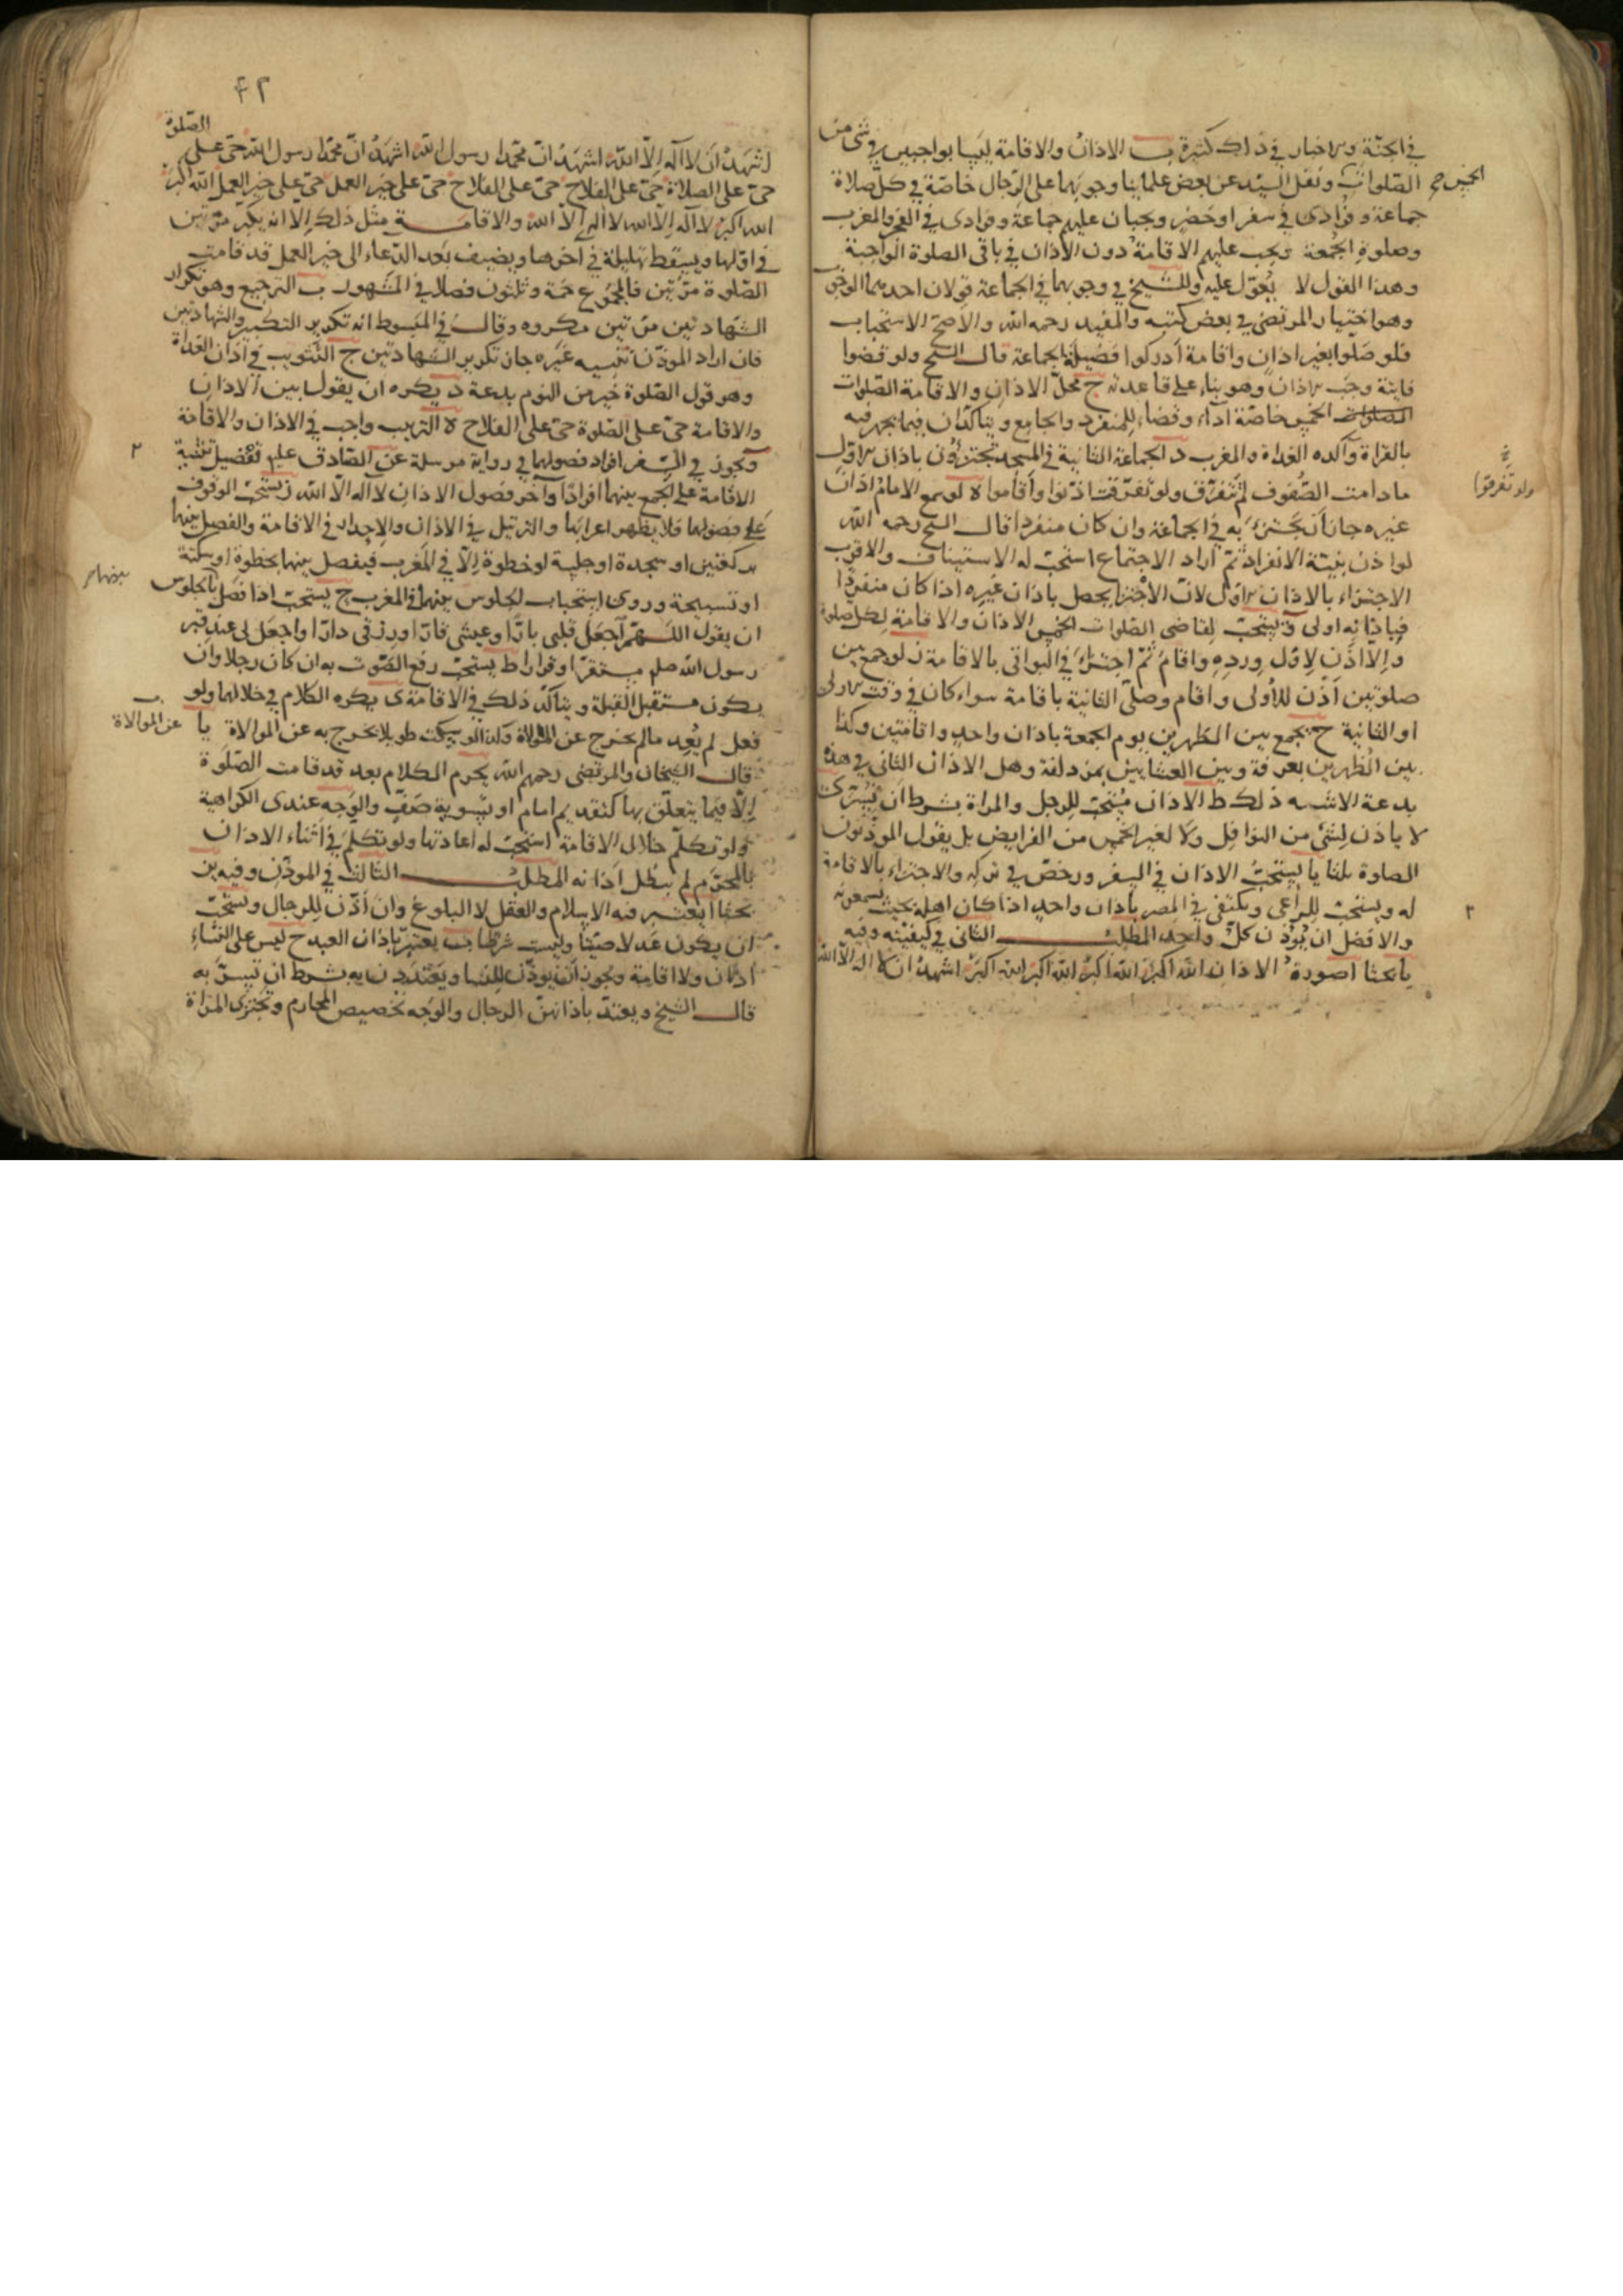 في الجنة والاخبار في ذلك كثيرة ب الاذان والاقامة ليسا بواجبين في شئ من
الصلوات الخمس صح ونقل السيد عن بعض علماينا وجوبهما على الرجال خاصة في كل صلاة
جماعة وفرادى في سفر او حضر ويجبان عليهم جماعة وفرادى في الفجر والمغرب
وصلوة الجمعة ويجب عليهم الاقامة دون الاذان في باقي الصلوة الواجبة
وهذا القول لا يعول عليه وللشيخ في وجوبهما في الجماعة قولان احدهما الوجوب
وهو اختيار المرتضى في بعض كتبه والمفيد رحمه الله والاصح الاستحباب
فلو صلوا بغير اذان واقامة ادركوا فضيلة الجماعة قال الشيخ ولو قضوا
فايتة وجب الاذان وهو بناء على قاعدته ج محل الاذان والاقامة الصلوات
الصلوات الخمس خاصة اداء وقضاء للمنفرد والجامع ويتاكدان فيما يجهر فيه
بالقراة وآكده الغداة والمغرب د الجماعة الثانية في المسجد تجتزؤن باذان الاول
ما دامت الصفوف لم تتفرق ولو تفرقت اذنوا واقاموا ه لو سمع الامام اذان
ولو تفرقوا
غيره جاز ان يجتزئ به في الجماعة وان كان منفردا قال الشيخ رحمه الله
لو اذن بنية الانفراد ثم اراد الاجتماع استحب له الاستيناف والاقرب
الاجتزاء بالاذان الاول لان الاجتزا يحصل باذان غيره اذا كان منفردا
فباذانه اولى و يستحب لقاضي الصلوات الخمس الاذان والاقامة لكل صلوة
والا اذن لاول ورده واقام ثم اجتزأ في البواقي بالاقامة ز لو جمع بين
صلوتين اذن للاولى واقام وصلى الثانية باقامة سواء كان في وقت الاولى
او الثانية ح يجمع بين الظهرين يوم الجمعة باذان واحد واقامتين وكذا
بين الظهرين بعرفة وبين العشايين بمزدلفة وهل الاذان الثاني في هذه
بدعة الاشبه ذلك ط الاذان يستحب للرجل والمراة بشرط ان تستر ى
لا ياذن لشئ من النوافل ولا لغير الخمس من الفرايض بل يقول الموذنون
الصلوة ثلثا يا يستحب الاذان في السفر ورخص في تركه والاجتزاء بالاقامة
له ويستحب للراعي ويكتفى في المصر باذان واحد اذا كان اهله بحيث يسمعونه
والافضل ان يؤذن كل واحد المطلب الثاني في كيفيته وفيه
يا بحثا ا صورة الاذان الله اكبر الله اكبر الله اكبر الله اكبر اشهد ان لا اله الا الله
٤٢
اشهد ان لا اله الا الله اشهد ان محمدا رسول الله اشهد ان محمدا رسول الله حي على الصلوة
حي على الصلاة حي على الفلاح حي على الفلاح حي على خير العمل حي على خير العمل الله اكبر
الله اكبر لا اله الا الله لا اله الا الله والاقامة مثل ذلك الا انه يكبر مرتين
في اولها ويسقط تهليلة في اخرها ويضيف بعد الدعاء الى خير العمل قد قامت
الصلوة مرتين فالمجموع خمسة وثلثون فصلا في المشهور ب الترجيع وهو تكرار
الشهادتين مرتين مكروه وقال في المبسوط انه تكرير التكبير والشهادتين
فان اراد الموذن تنبيه غيره جاز تكرير الشهادتين ج التثويب في اذان الغداة
وهو قول الصلوة خير من النوم بدعة د يكره ان يقول بين الاذان
والاقامة حي على الصلوة حي على الفلاح ه الترتيب واجب في الاذان والاقامة
و يجوز في السفر افراد فصولهما في رواية مرسلة عن الصادق عليه تفضيل تثنية
الاقامة على الجمع بينهما افرادا وآخر فصول الاذان لا اله الا الله ز يستحب الوقوف
على فصولهما فلا يظهر اعرابها والترتيل في الاذان والاحدار في الاقامة والفصل بينهما
بركعتين او سجدة او جلسة او خطوة الا في المغرب فيفصل بينهما بخطوة او سكتة
او تسبيحة وروى استحباب الجلوس بينهما في المغرب ح يستحب اذا فصل بالجلوس
بينهما
ان يقول اللهم اجعل قلبي بارا وعيشي قارا ورزقي دارا واجعل لي عند قبر
رسول الله صلى مستقرا وقرارا ط يستحب رفع الصوت به ان كان رجلا وان
يكون مستقبل القبلة ويتاكد ذلك في الاقامة ى يكره الكلام في خلالهما ولو
فعل لم يعد مالم يخرج عن الموالاة وكذا لو سكت طويلا يخرج به عن الموالاة يا
عن الموالاة
قال الشيخان والمرتضى رحمهم الله يحرم الكلام بعد قد قامت الصلوة
الا فيما يتعلق بها كتقديم امام او تسوية صف والوجه عندى الكراهية
ولو تكلم خلال الاقامة استحب له اعادتها ولو تكلم في اثناء الاذان
بالمحرم لم يبطل اذانه المطلب الثالث في الموذن وفيه ين
بحثا ا يعتبر فيه الاسلام والعقل لا البلوغ وان اذن للرجال ويستحب
ان يكون عدلا صيتا وليست شرطا ب يعتبر باذان العبد ح ليس على النساء
اذان ولا اقامة ويجوز ان يوذن للنسا ويعتددن به بشرط ان تسر به
قال الشيخ ويعتد باذانهن الرجال والوجه تخصيص المحارم وتجتزى المراة